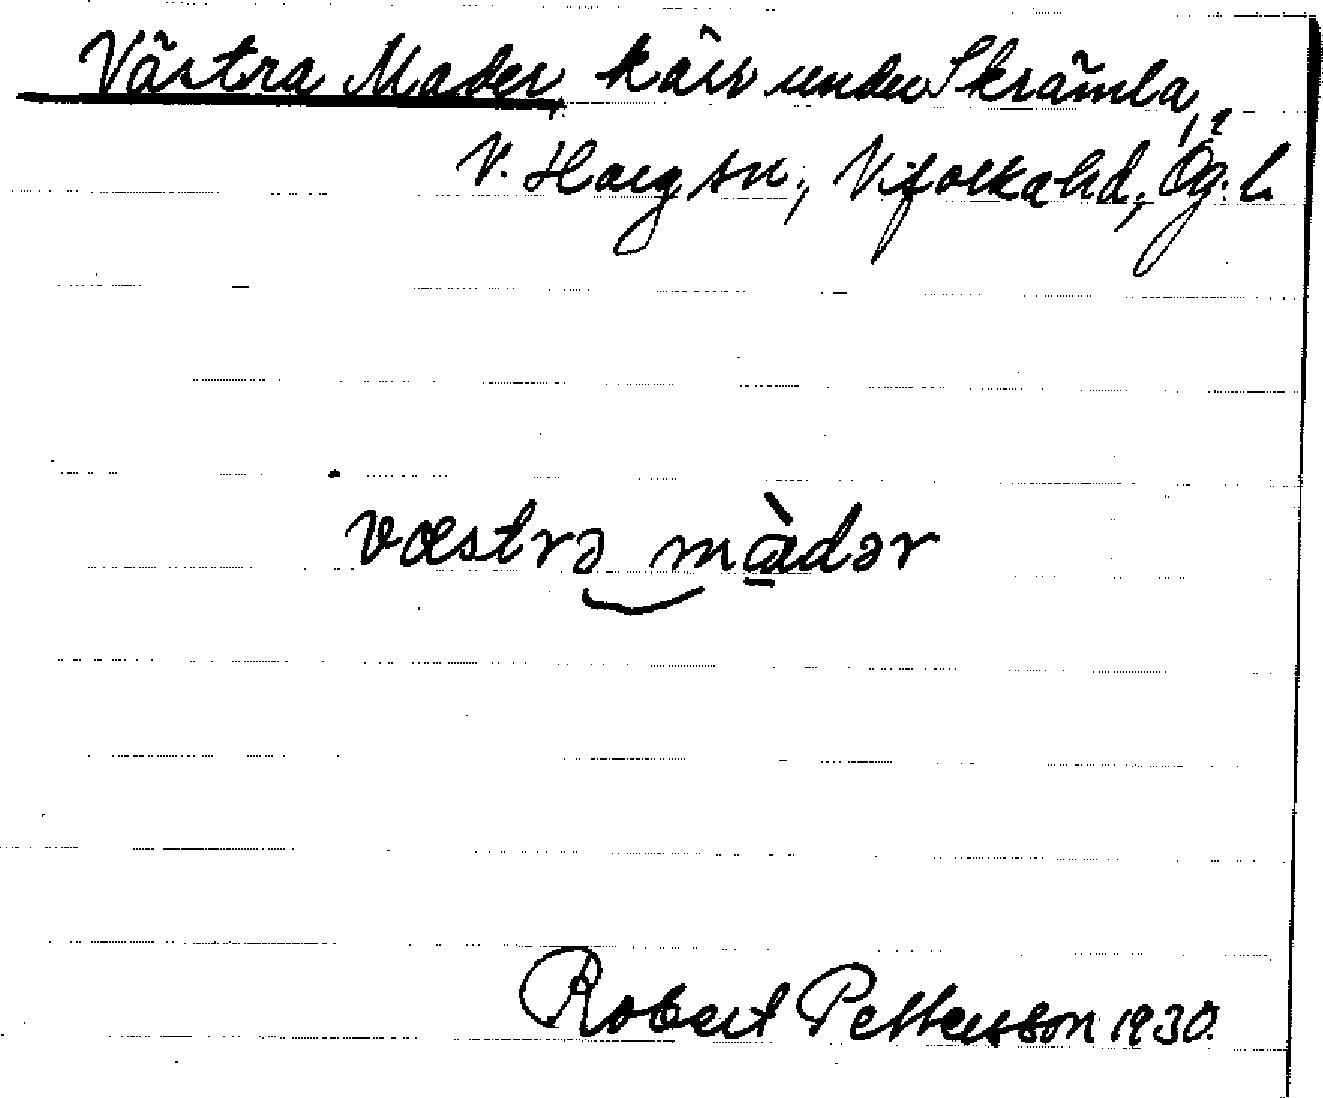 Västra Mader, kärr under Skrämla,
V. Harg sn., Vifolka hd, Ög. l.
væstrə màdər
Robert Pettersson 1930.